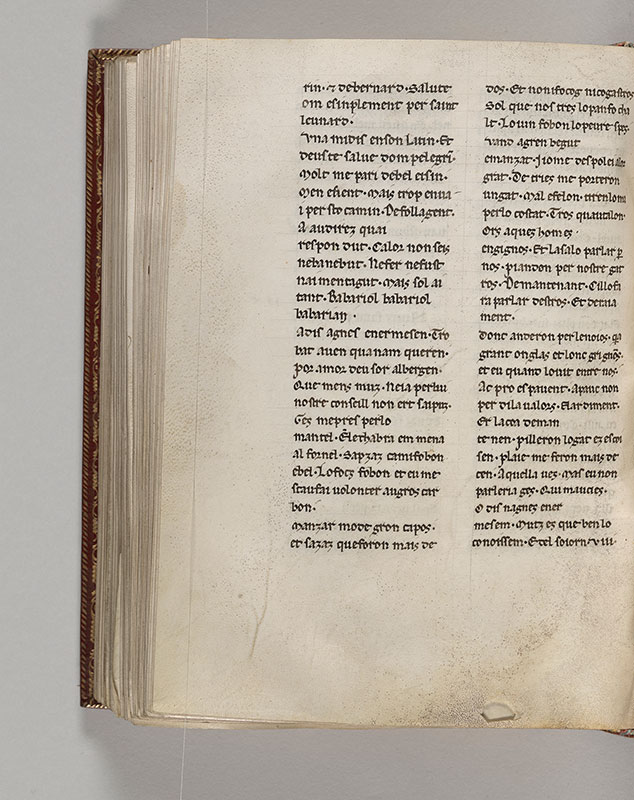 rin · ⁊ debernard · Salute
om esinplement per saint
leunard ·
Vna midis enson latin · Et
deuste salue dom pelegrĩ ·
Molt me pari debel eisin ·
Men esient · Mais trop enua
i per sto camin · Defollagent ·
A audirez quai
respon dut · Calor non seis
nebanebut · Nefer nefust
nai mentagut · Mais sol ai
tant · Babariol babariol
babarian ·
Adis agnes enermesen · Tro
bat auen quanam queren ·
por amor deu sor albergen ·
Que mens muz · Neia perlui
nostre conseill non ert saipuz ·
Gez mepres perlo
mantel · Ele thabra em mena
al fornel · Sapzaz camifobon
ebel · Lofocs fobon et eu me
scaufai uolonter augros car
bon ·
Manzar mode gron capos ·
et sazaz queforon mais de
dos · Et non ifocog nicogastros
Sol que nos tres lopanfo cha
lt · Louin fobon lopeure spes ·
uand agren begut
emanzat · Jiome despolei
grat · De tries me porteron
ungat · Mal efelon ·
perlo costat · Tros quautalon ·
Ois aquez homes ·
engignos · Et lasalo parlar p̱
nos · piandon per nostre gat
ros · Demantenant · Cillofa
ra parlar destros · Et derua
ment ·
Donc anderon perlenoios · 
grant onglas et lonc grignõs ·
et eu quand louit entre nos ·
Ac pro espauent · Apauc non
per dila ualors · Elardiment ·
Er lacoa deman
te nen · pilleron logat ez escoi
sen · plaie me feron mais de
cen · Aquella uez · Mas eu non
parleria ges · Qui maucies ·
O dis nagnes ener
mesem · Mutz es que ben lo
conoissem · Edel soiorn · v iii ·